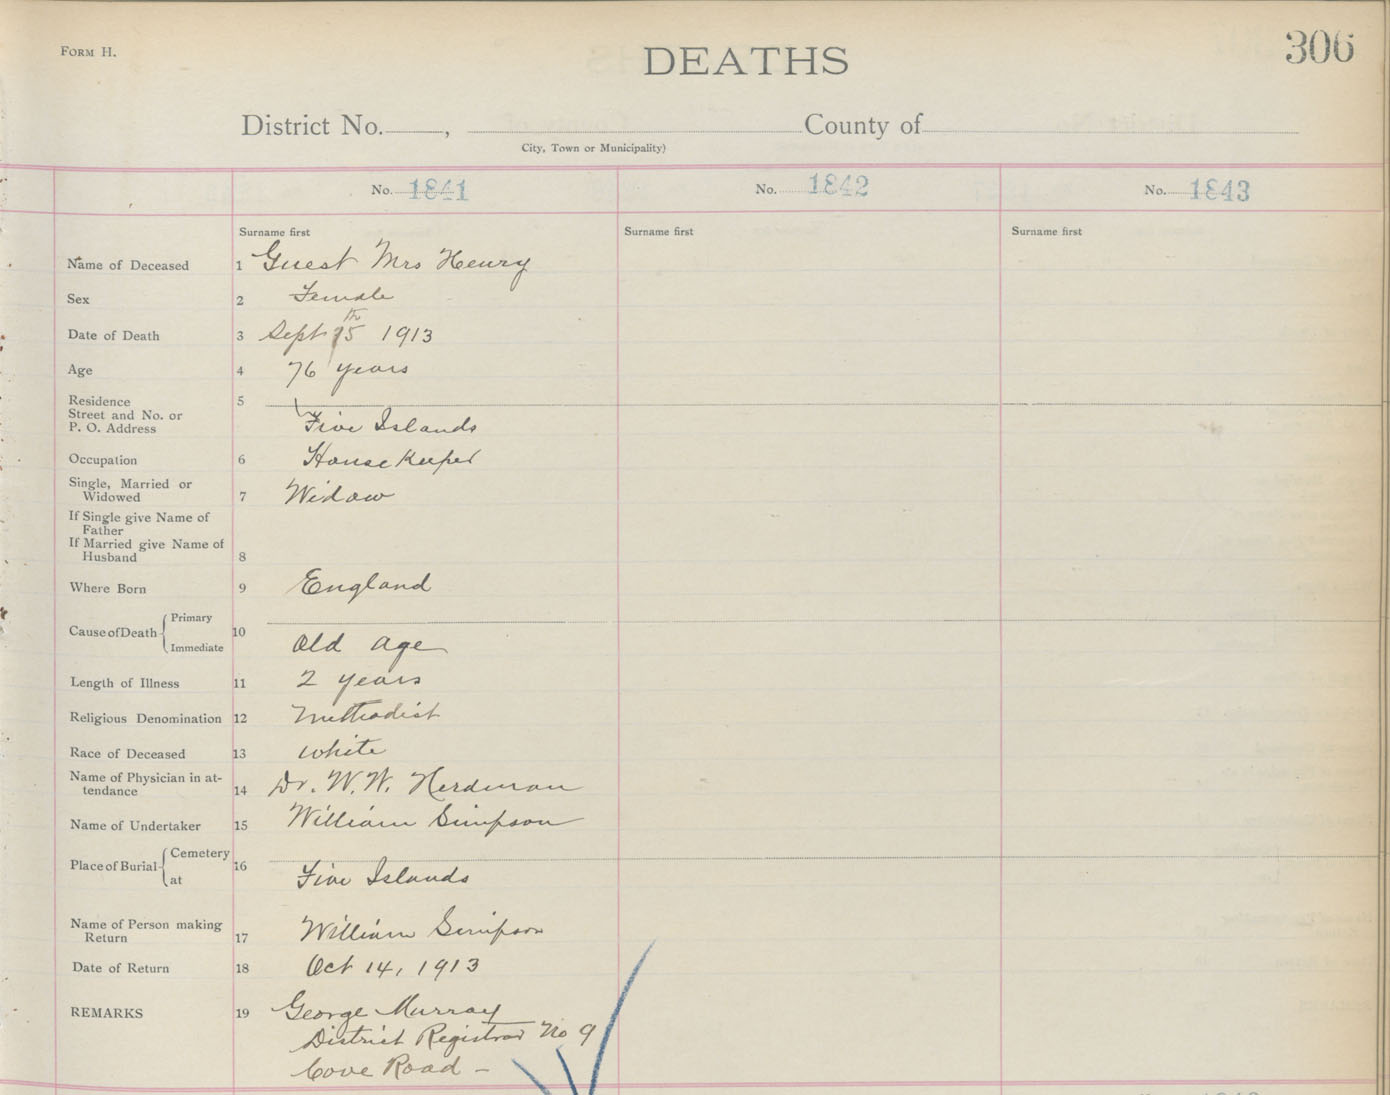 FORM H.
DEATHS
306
District No. , County of
City, Town or Municipality)
No. 1841
No. 1842
No. 1843
Surname first
Surname first
Surname first
Name of Deceased 1 Guest Mrs Henry
Sex 2 Female
Date of Death 3 Sept 15th 1913
Age 4 76 years
Residence 5
Street and No. or
P. O. Address Five Islands
Occupation 6 House Keeper
Single, Married or
Widowed 7 Widow
If Single give Name of
Father
If Married give Name of
Husband 8
Where Born 9 England
Cause of Death Primary
10
Immediate Old age
Length of Illness 11 2 years
Religious Denomination 12 Methodist
Race of Deceased 13 white
Name of Physician in at-
tendance 14 Dr. W. W. Herdman
Name of Undertaker 15 William Simpson
Place of Burial Cemetery 16
at Five Islands
Name of Person making
Return 17 William Simpson
Date of Return 18 Oct 14, 1913
REMARKS 19 George Murray
District Registrar No 9
Cove Road -